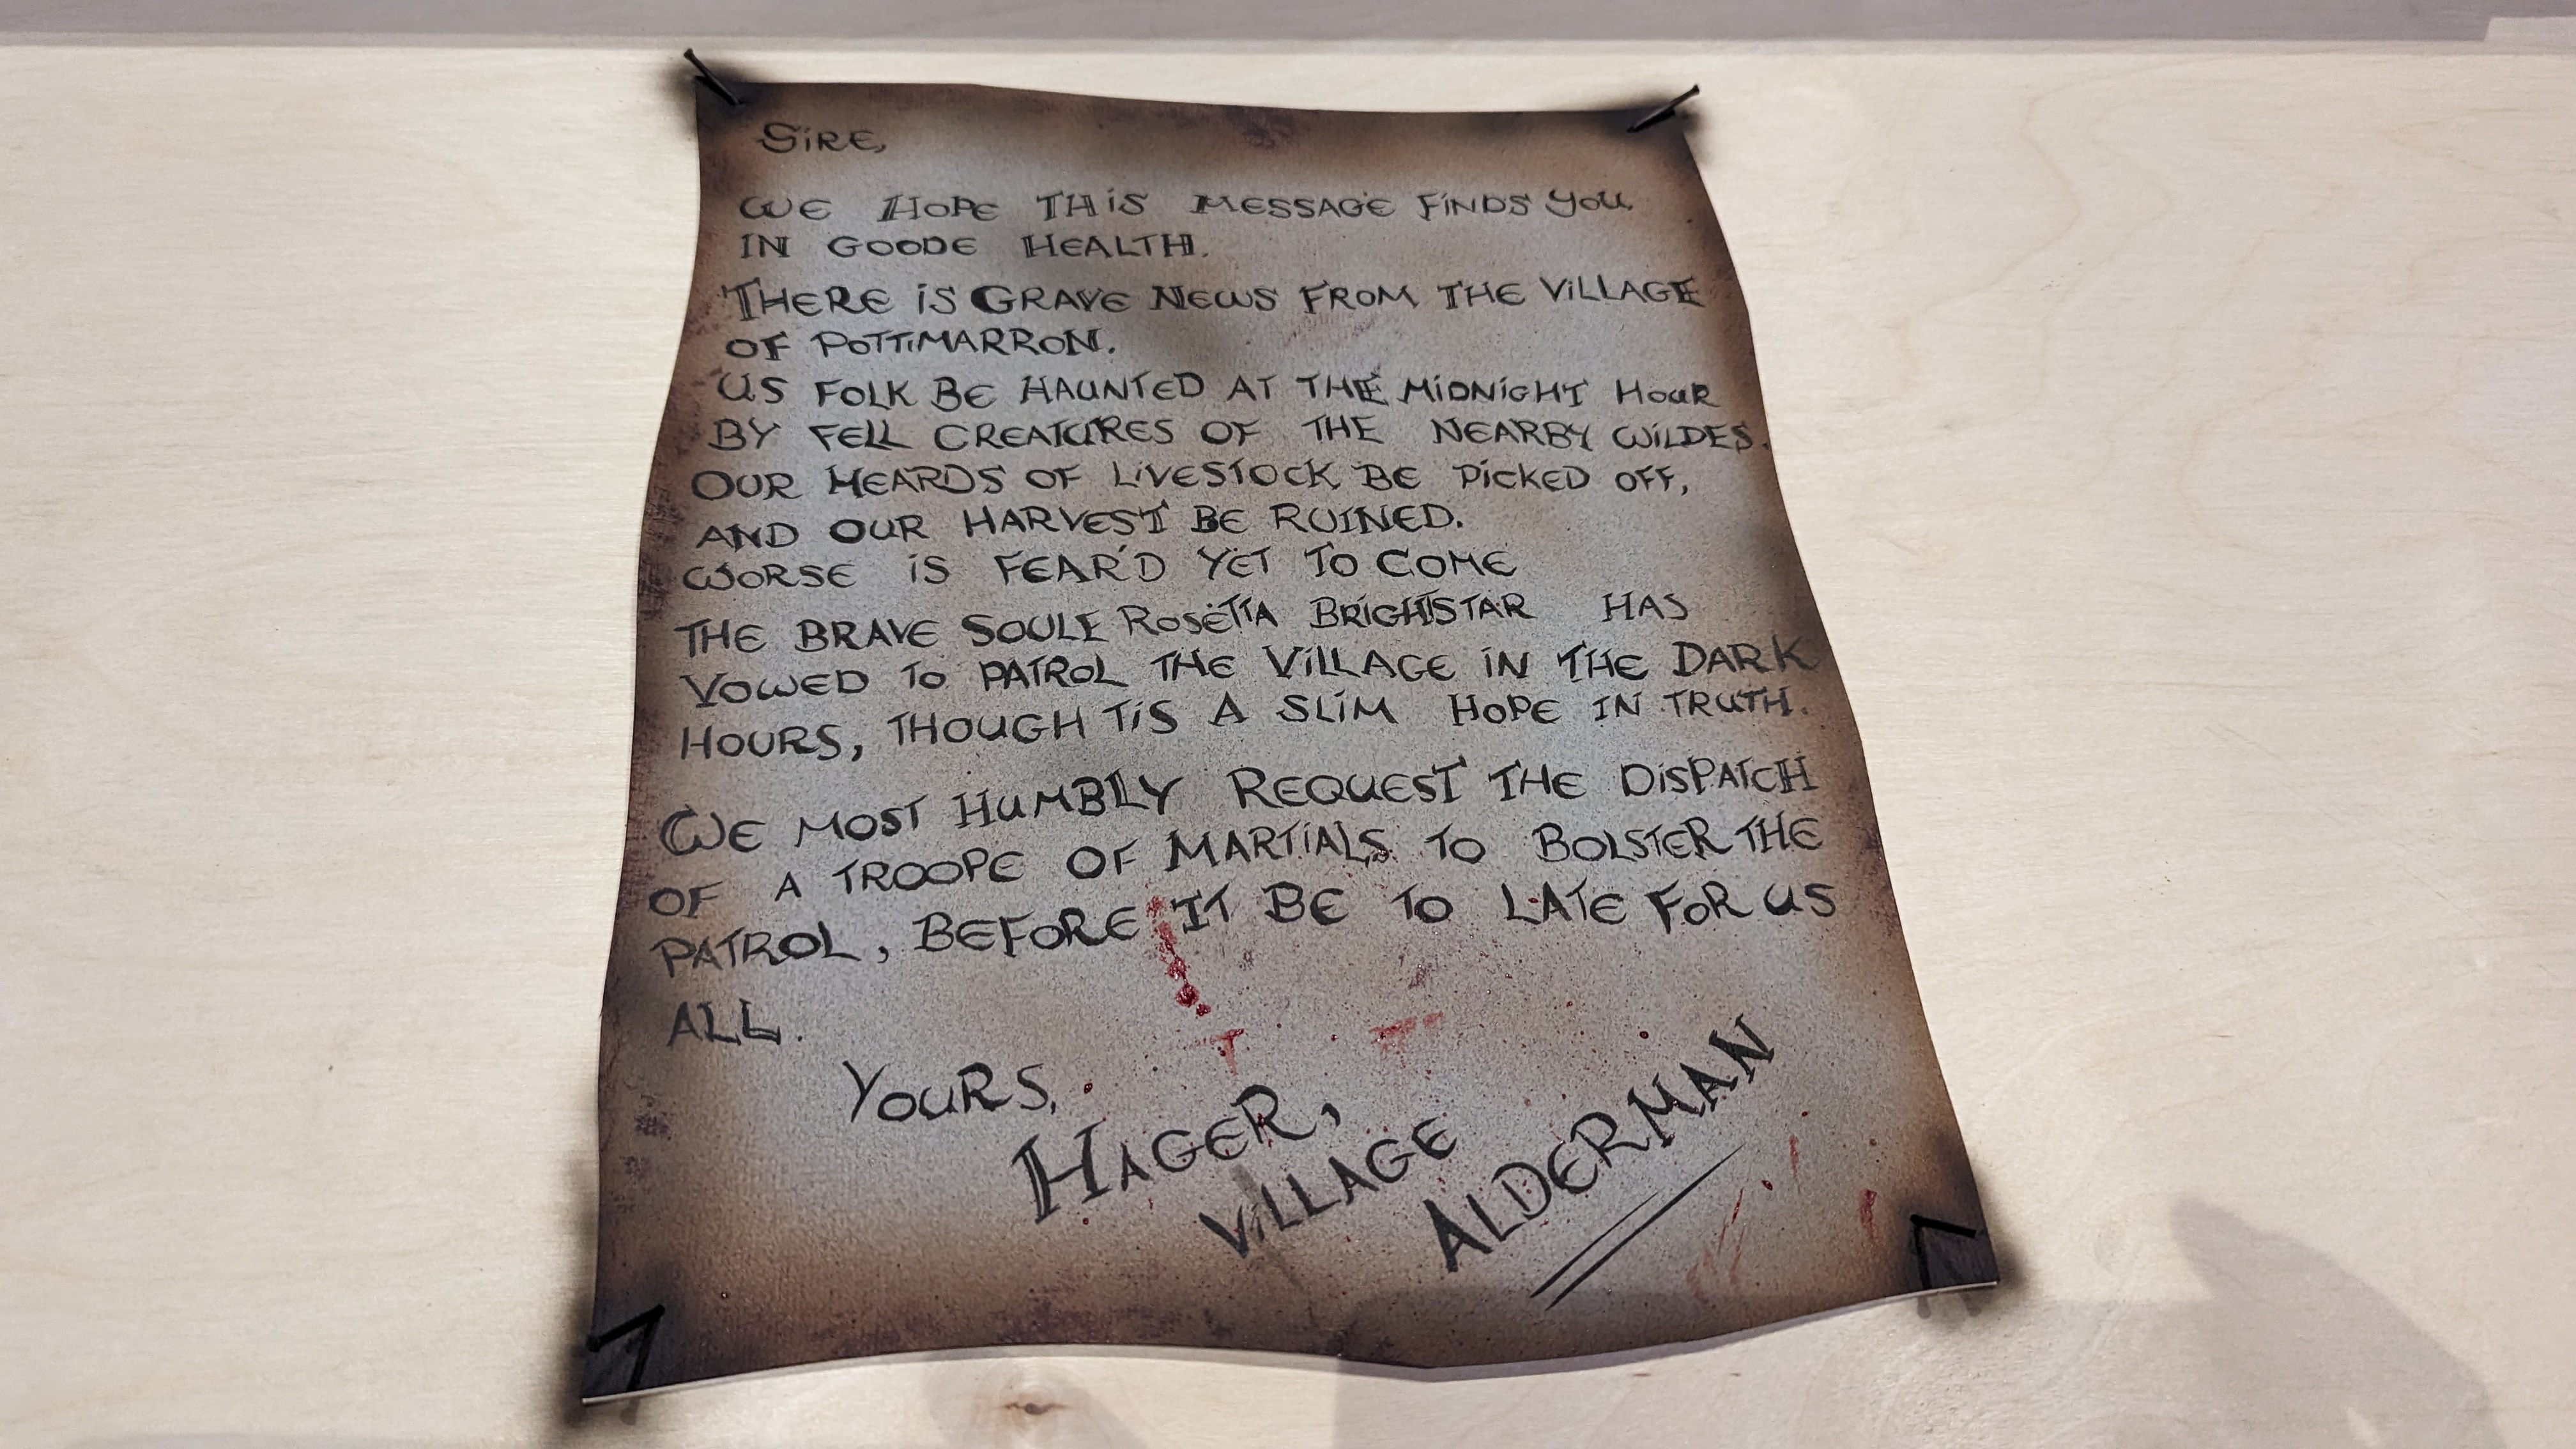 SiRE,
WE HOPE THiS MESSAGE FiNDS YOU
IN GOODE HEALTH.
THERE iS GRAVE NEWS FROM THE ViLLAGE
OF POTTiMARRON.
US FOLK BE HAUNTED AT THE MiDNiGHT HOUR
BY FELL CREATURES OF THE NEARBY WiLDES.
OUR HEARDS OF LiVESTOCK BE PiCKED OFF,
AND OUR HARVEST BE RUINED.
WORSE iS FEAR'D YET TO COME
THE BRAVE SOULE ROSETTA BRiGHTSTAR HAS
VOWED TO PATROL THE ViLLAGE iN THE DARK
HOURS, THOUGH TiS A SLiM HOPE IN TRUTH.
WE MOST HUMBLY REQUEST THE DiSPATCH
OF A TROOPE OF MARTiALS TO BOLSTER THE
PATROL, BEFORE IT BE TO LATE FOR US
ALL.
YOURS,
HAGER,
ViLLAGE
ALDERMAN